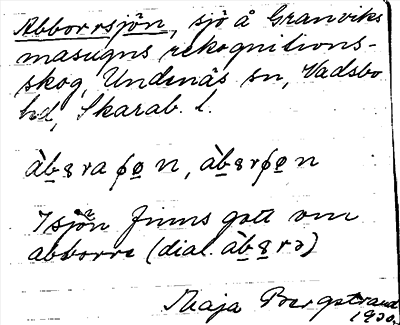 Abborrsjön, sjö å Granviks
masugns rekognitions-
skog, Undenäs sn, Vadsbo
hd, Skarab. l.
àb̲ȣra ɸo̲ n, àb̲ȣrɸo̲ n
I sjön finns gott om
abborre (dial. àb̲ȣ̲rə)
Maja Bergstrand
1930.